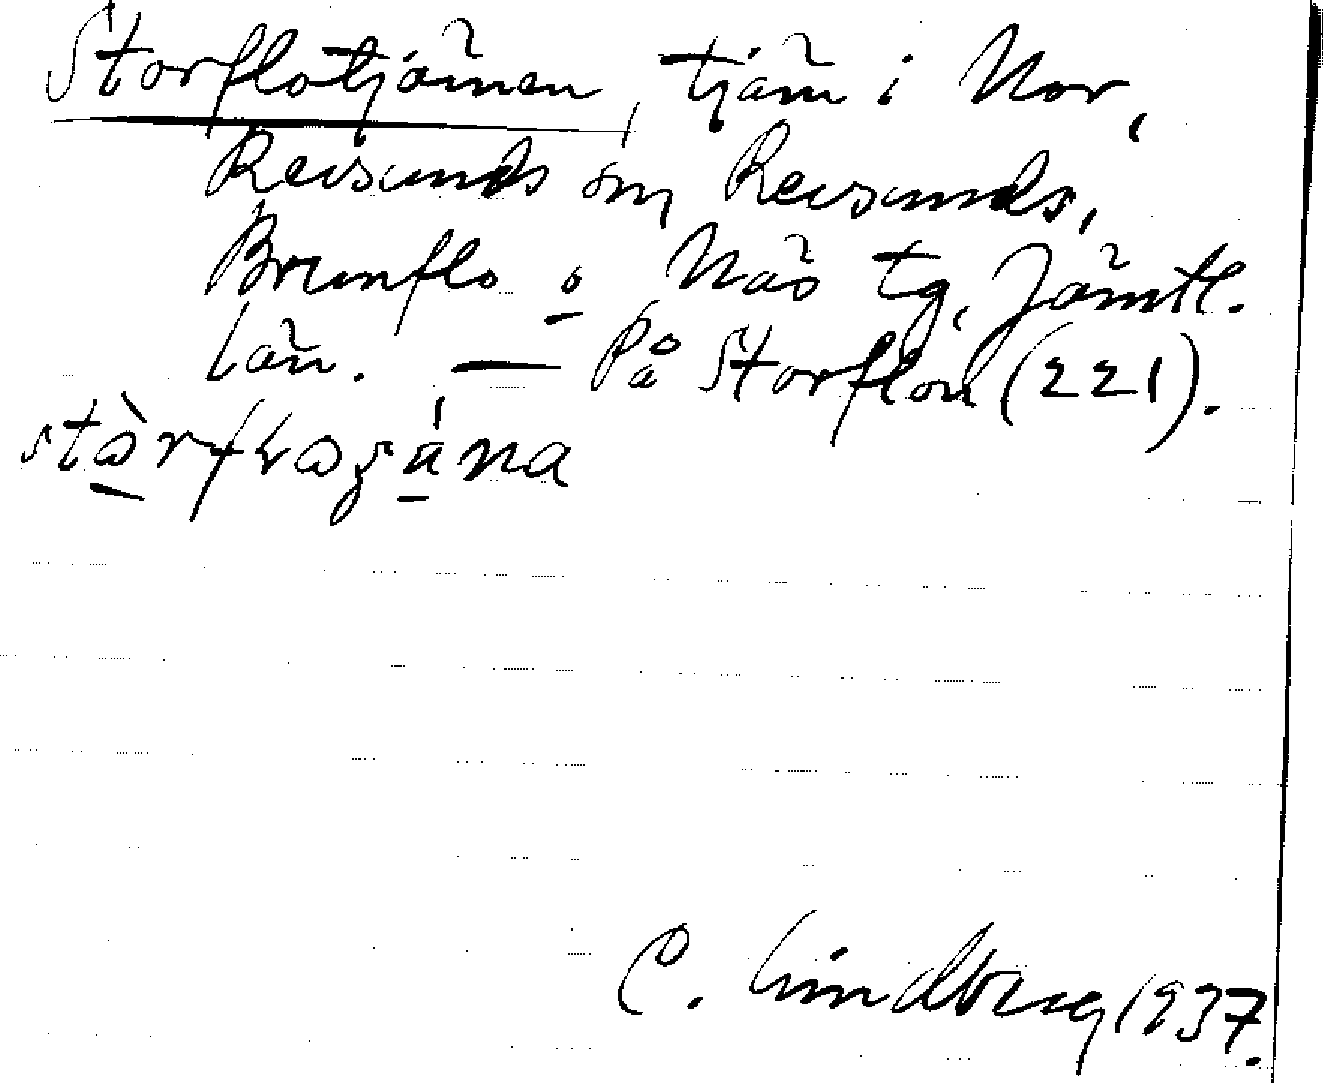 Storflotjärnen, tjärn i Nor,
Revsunds sn, Revsunds,
Brunflo o Näs tg, Jämtl.
län. — På Storflon (221).
C. Lindberg 1937.